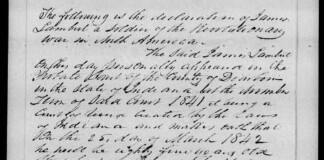 The following is the declaration of James
Lambert a Soldier of the Revolutionary
War in North America.
The Said James Lambert
on this day personally appeared in the
Probate Court of the County of Dearborn
in the State of Indiana at the November
Term of Said Court 1841 it being a
Court of record created by the Laws
of Indiana and maketh oath that
on the 25 day of March 1842
he will be eighty five years old